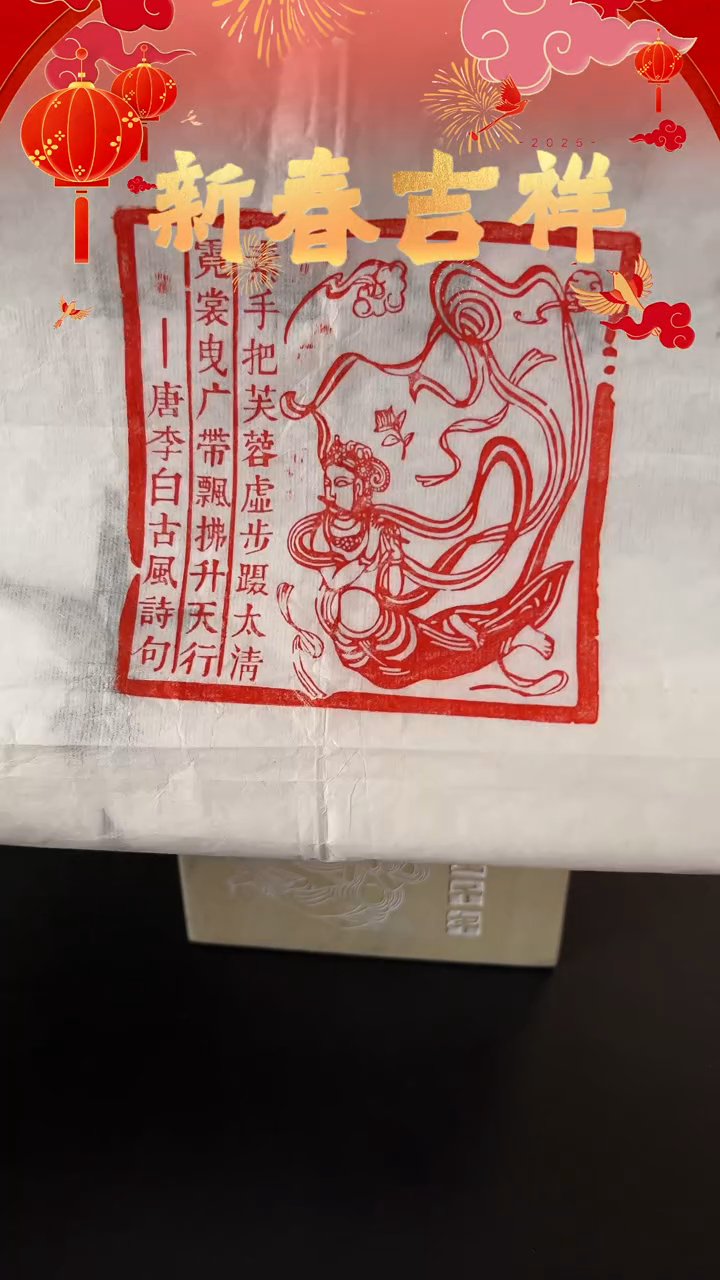 -2025-
新春吉祥
手把芙蓉虚步蹑太清
霓裳曳广帶飄拂升天行
—唐李白古風詩句